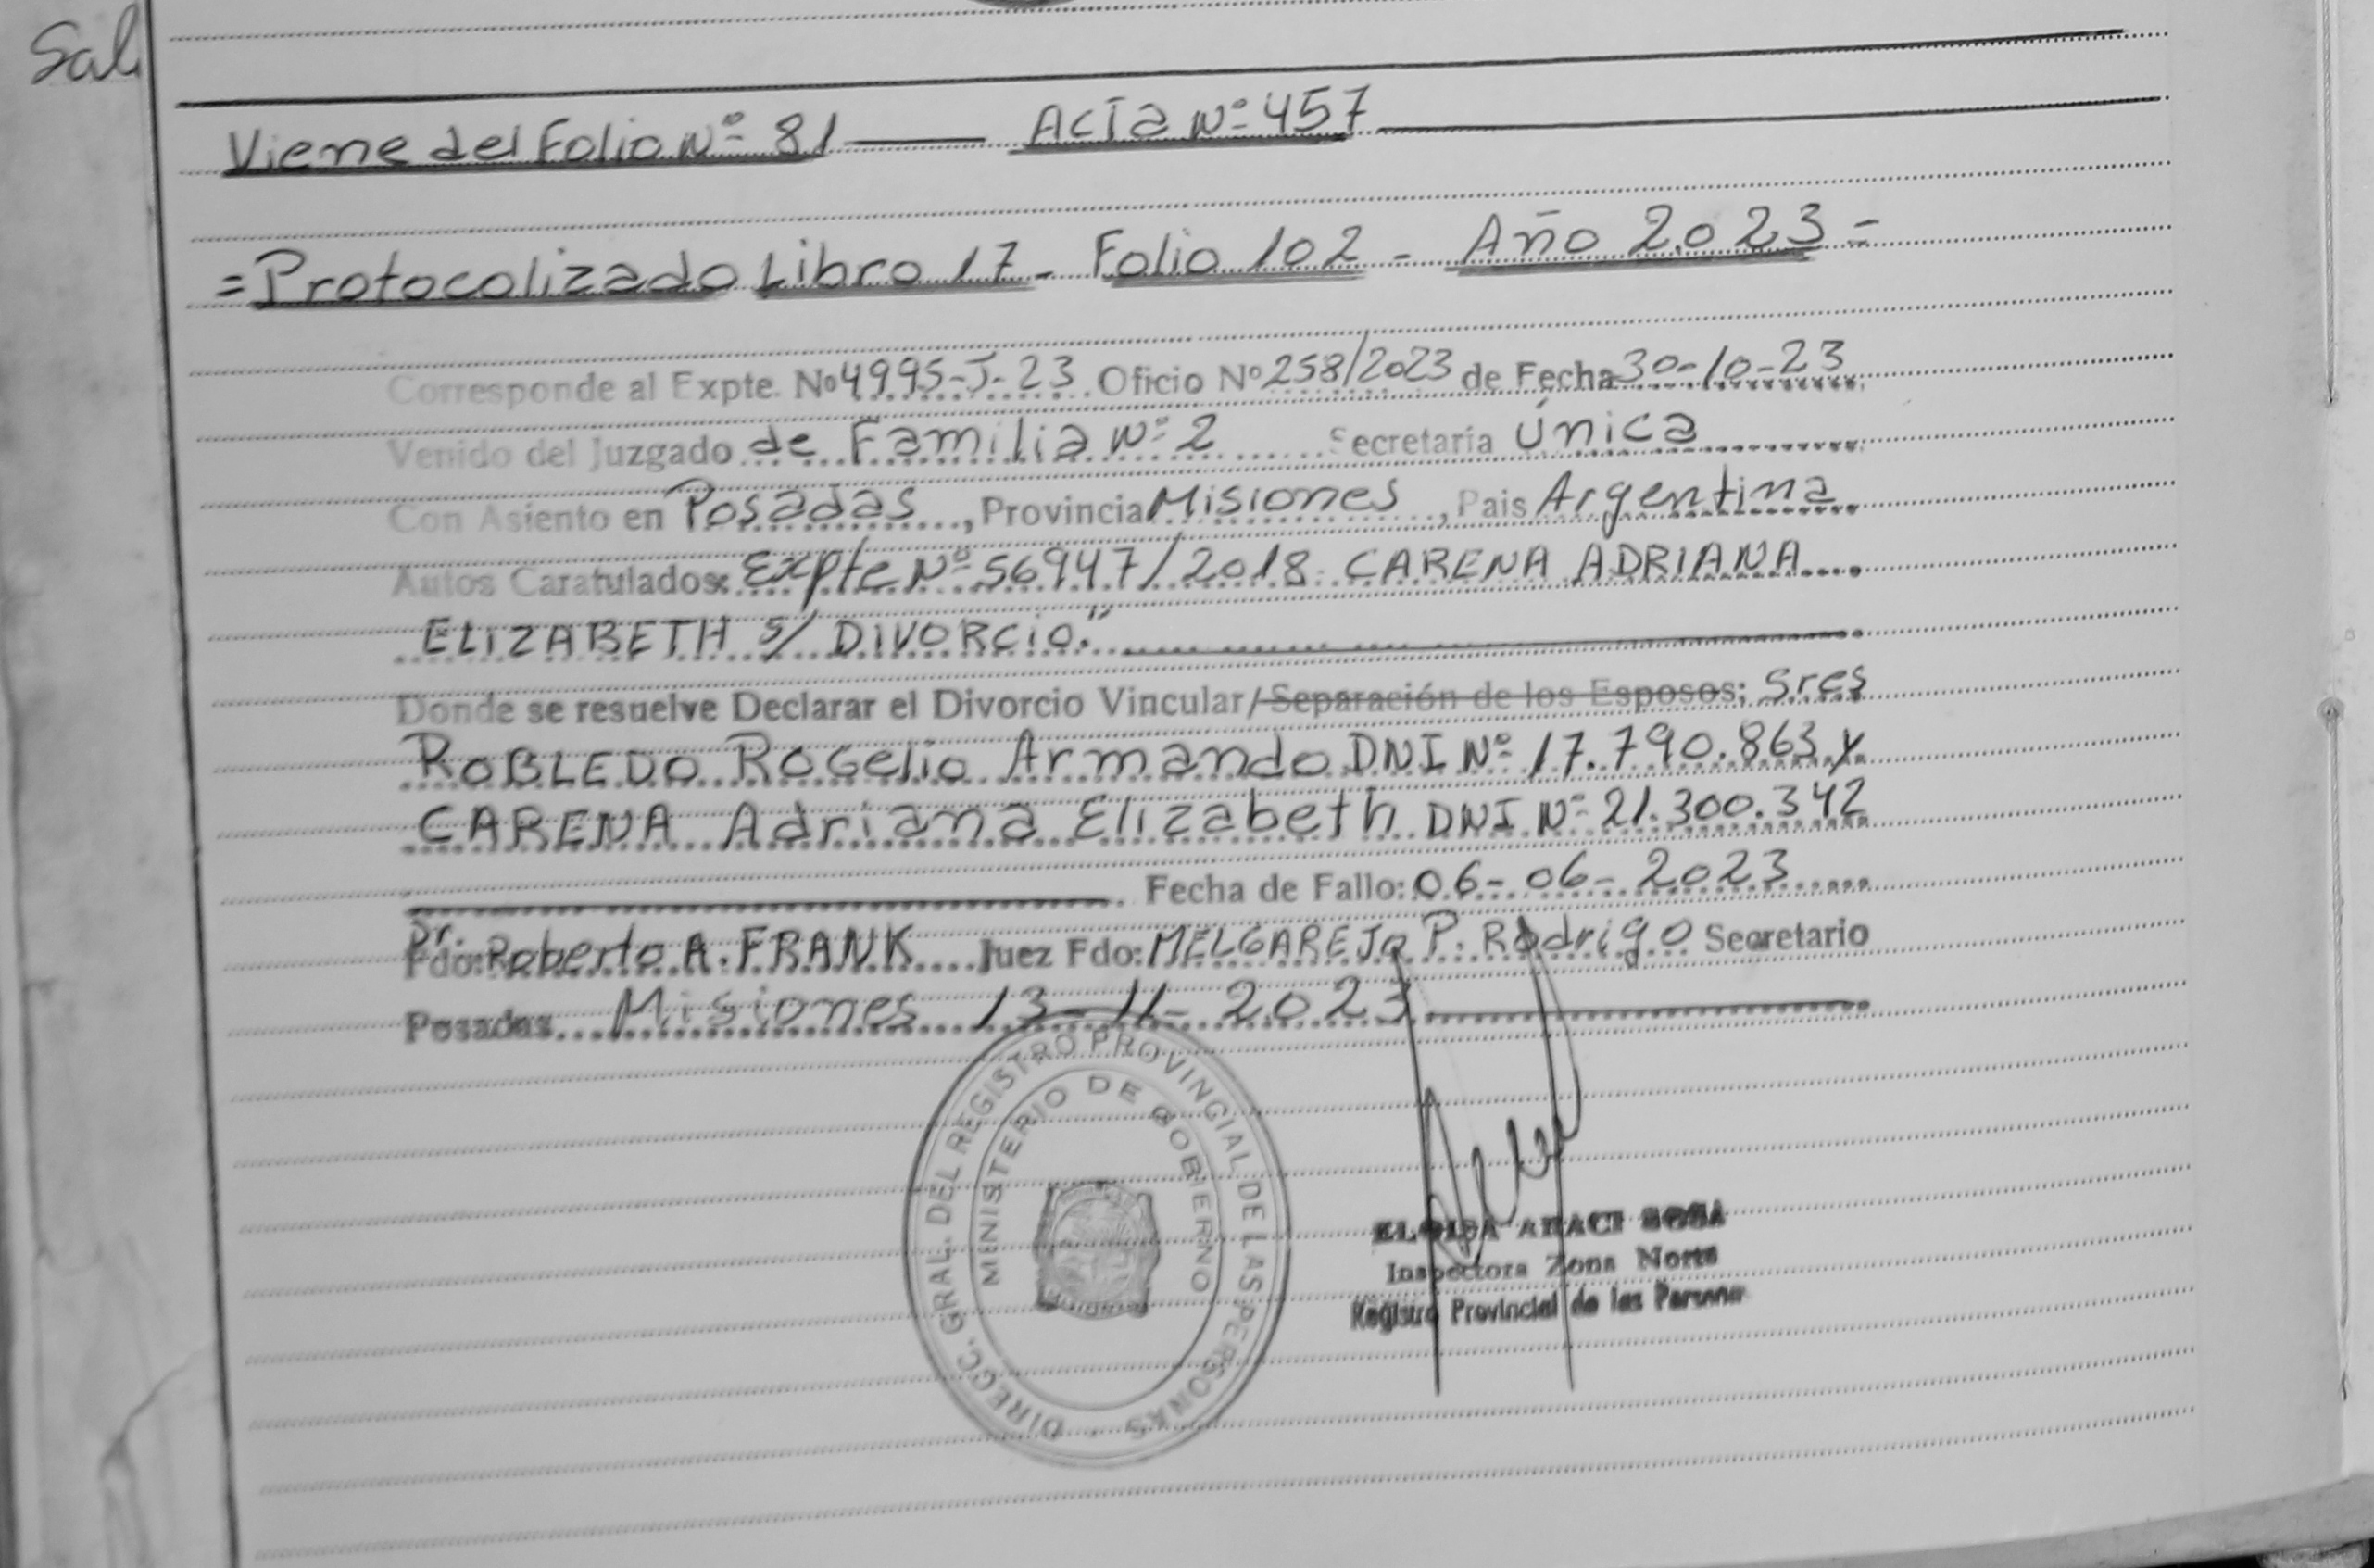 Sal
Viene del Folio Nº 81 — Acta Nº 457
= Protocolizado Libro 17 - Folio 102 - Año 2.023 =
Corresponde al Expte. Nº 4995-J-23 Oficio Nº 258/2023 de Fecha 30-10-23
Venido del Juzgado de Familia Nº 2 Secretaría Única
Con Asiento en Posadas, Provincia Misiones, Pais Argentina
Autos Caratulados: Expte Nº 56947/2018 CARENA ADRIANA
ELIZABETH s/ DIVORCIO."
Donde se resuelve Declarar el Divorcio Vincular/Separación de los Esposos: Sres
ROBLEDO Rogelio Armando DNI Nº 17.790.863 y
CARENA Adriana Elizabeth DNI Nº 21.300.342
Fecha de Fallo: 06-06-2023
Dr.
Fdo: Roberto A. FRANK Juez Fdo: MELGAREJO P. Rodrigo Secretario
Posadas Misiones 13-11-2023
DIRECC. GRAL. DEL REGISTRO PROVINCIAL DE LAS PERSONAS
MINISTERIO DE GOBIERNO
ELOISA ARACI SOSA
Inspectora Zona Norte
Registro Provincial de las Personas